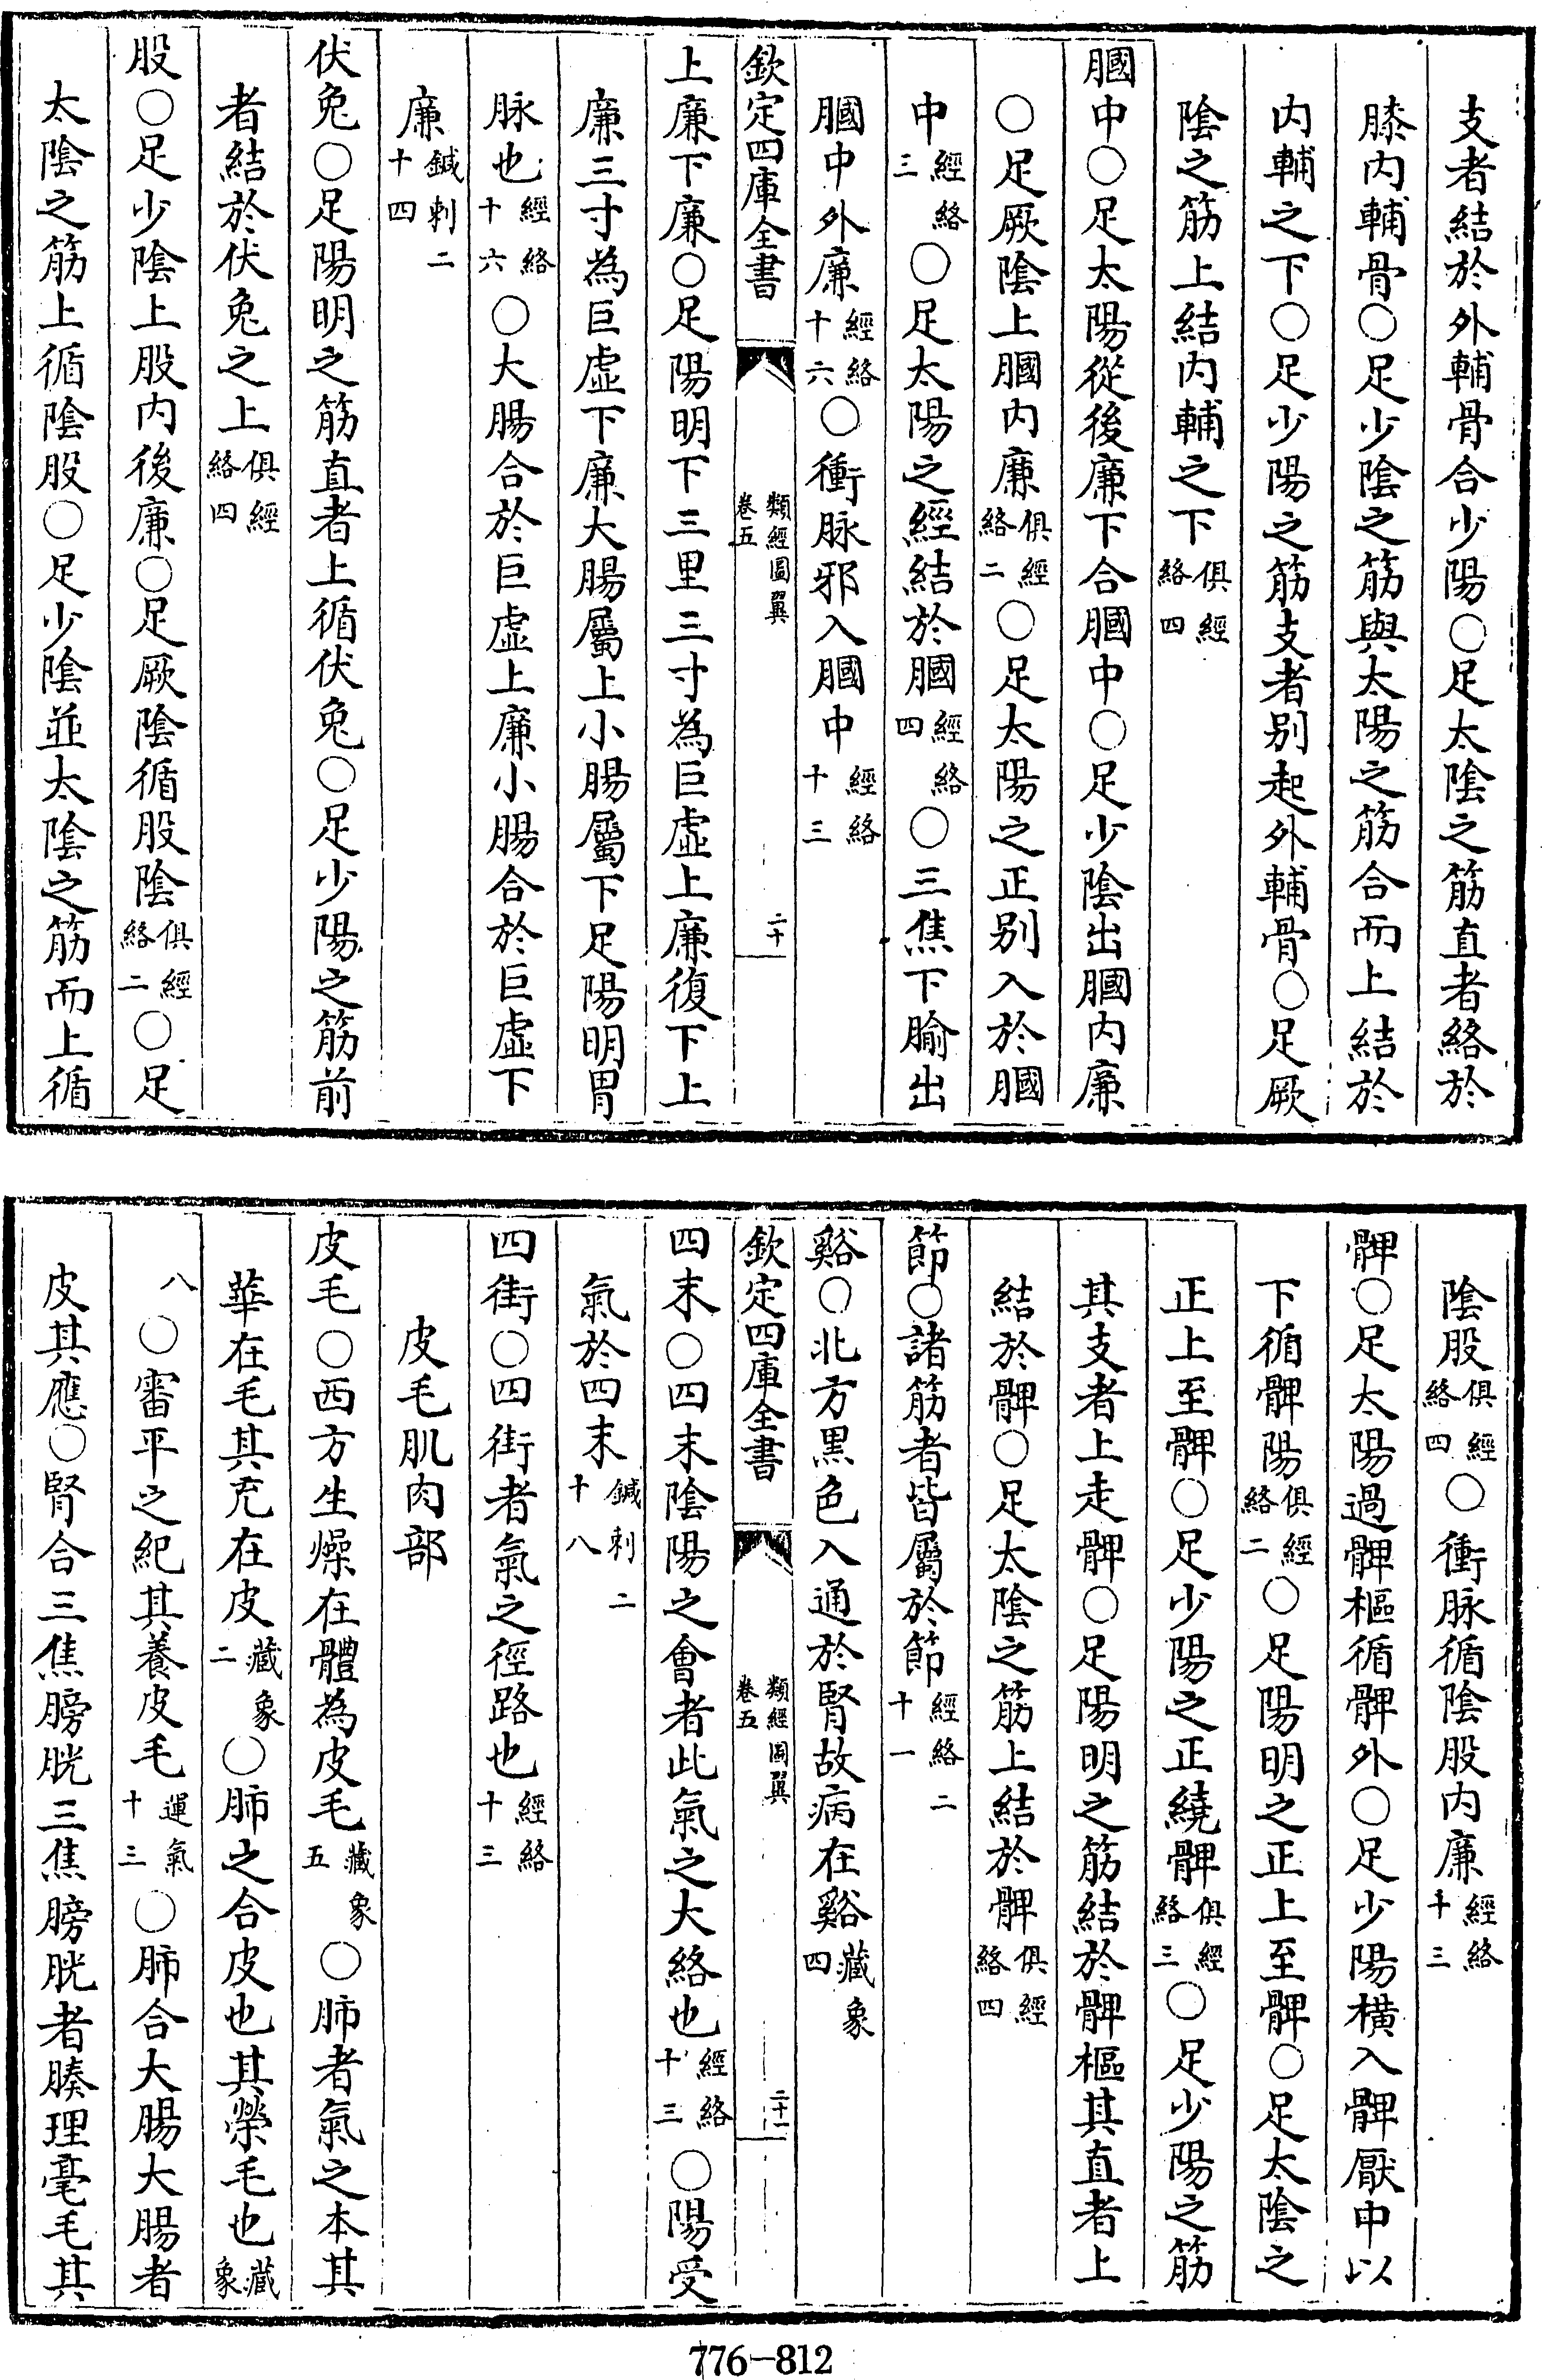 支者結於外輔骨合少陽○足太陰之筋直者絡於
膝内輔骨○足少陰之筋與太陽之筋合而上結於
内輔之下○足少陽之筋支者别起外輔骨○足厥
陰之筋上結内輔之下俱經絡四
膕中○足太陽從後廉下合膕中○足少陰出膕内廉
○足厥陰上膕内廉俱經絡二○足太陽之正别入於膕
中經絡三○足太陽之經結於膕經絡四○三焦下腧出
膕中外廉經絡十六○衝脉邪入膕中經絡十三
欽定四庫全書
類經圖翼
卷五
二十
上廉下廉○足陽明下三里三寸為巨虛上廉復下上
廉三寸為巨虛下廉大腸屬上小腸屬下足陽明胃
脉也經絡十六○大腸合於巨虛上廉小腸合於巨虛下
廉鍼刺二十四
伏兔○足陽明之筋直者上循伏兔○足少陽之筋前
者結於伏兔之上俱經絡四
股○足少陰上股内後廉○足厥陰循股陰俱經絡二○足
太陰之筋上循陰股○足少陰並太陰之筋而上循
陰股俱經絡四○衝脉循陰股内廉經絡十三
髀○足太陽過髀樞循髀外○足少陽横入髀厭中以
下循髀陽俱經絡二○足陽明之正上至髀○足太陰之
正上至髀○足少陽之正繞髀俱經絡三○足少陽之筋
其支者上走髀○足陽明之筋結於髀樞其直者上
結於髀○足太陰之筋上結於髀俱經絡四
節○諸筋者皆屬於節經絡二十一
谿○北方黒色入通於腎故病在谿藏象四
欽定四庫全書
類經圖翼
卷五
二十一
四末○四末陰陽之會者此氣之大絡也經絡十三○陽受
氣於四末鍼刺二十八
四街○四街者氣之徑路也經絡十三
皮毛肌肉部
皮毛○西方生燥在體為皮毛藏象五○肺者氣之本其
華在毛其充在皮藏象二○肺之合皮也其榮毛也藏象
八○審平之紀其養皮毛運氣十三○肺合大腸大腸者
皮其應○腎合三焦膀胱三焦膀胱者腠理毫毛其
776-812